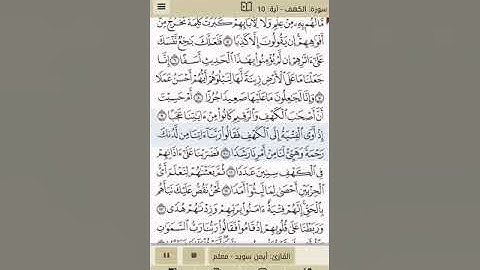 سورة: الكهف - آية: 10
مَّا لَهُم بِهِۦ مِنْ عِلْمٍ وَلَا لِءَابَآئِهِمْ كَبُرَتْ كَلِمَةً تَخْرُجُ مِنْ
أَفْوَٰهِهِمْ إِن يَقُولُونَ إِلَّا كَذِبًا ۝٥ فَلَعَلَّكَ بَٰخِعٌ نَّفْسَكَ
عَلَىٰٓ ءَاثَٰرِهِمْ إِن لَّمْ يُؤْمِنُوا۟ بِهَٰذَا ٱلْحَدِيثِ أَسَفًا ۝٦ إِنَّا
جَعَلْنَا مَا عَلَى ٱلْأَرْضِ زِينَةً لَّهَا لِنَبْلُوَهُمْ أَيُّهُمْ أَحْسَنُ عَمَلًا
۝٧ وَإِنَّا لَجَٰعِلُونَ مَا عَلَيْهَا صَعِيدًا جُرُزًا ۝٨ أَمْ حَسِبْتَ
أَنَّ أَصْحَٰبَ ٱلْكَهْفِ وَٱلرَّقِيمِ كَانُوا۟ مِنْ ءَايَٰتِنَا عَجَبًا ۝٩
إِذْ أَوَى ٱلْفِتْيَةُ إِلَى ٱلْكَهْفِ فَقَالُوا۟ رَبَّنَآ ءَاتِنَا مِن لَّدُنكَ
رَحْمَةً وَهَيِّئْ لَنَا مِنْ أَمْرِنَا رَشَدًا ۝١٠ فَضَرَبْنَا عَلَىٰٓ ءَاذَانِهِمْ
فِى ٱلْكَهْفِ سِنِينَ عَدَدًا ۝١١ ثُمَّ بَعَثْنَٰهُمْ لِنَعْلَمَ أَىُّ
ٱلْحِزْبَيْنِ أَحْصَىٰ لِمَا لَبِثُوٓا۟ أَمَدًا ۝١٢ نَّحْنُ نَقُصُّ عَلَيْكَ نَبَأَهُم
بِٱلْحَقِّ إِنَّهُمْ فِتْيَةٌ ءَامَنُوا۟ بِرَبِّهِمْ وَزِدْنَٰهُمْ هُدًى ۝١٣
وَرَبَطْنَا عَلَىٰ قُلُوبِهِمْ إِذْ قَامُوا۟ فَقَالُوا۟ رَبُّنَا رَبُّ ٱلسَّمَٰوَٰتِ
القارئ: أيمن سويد - معلم